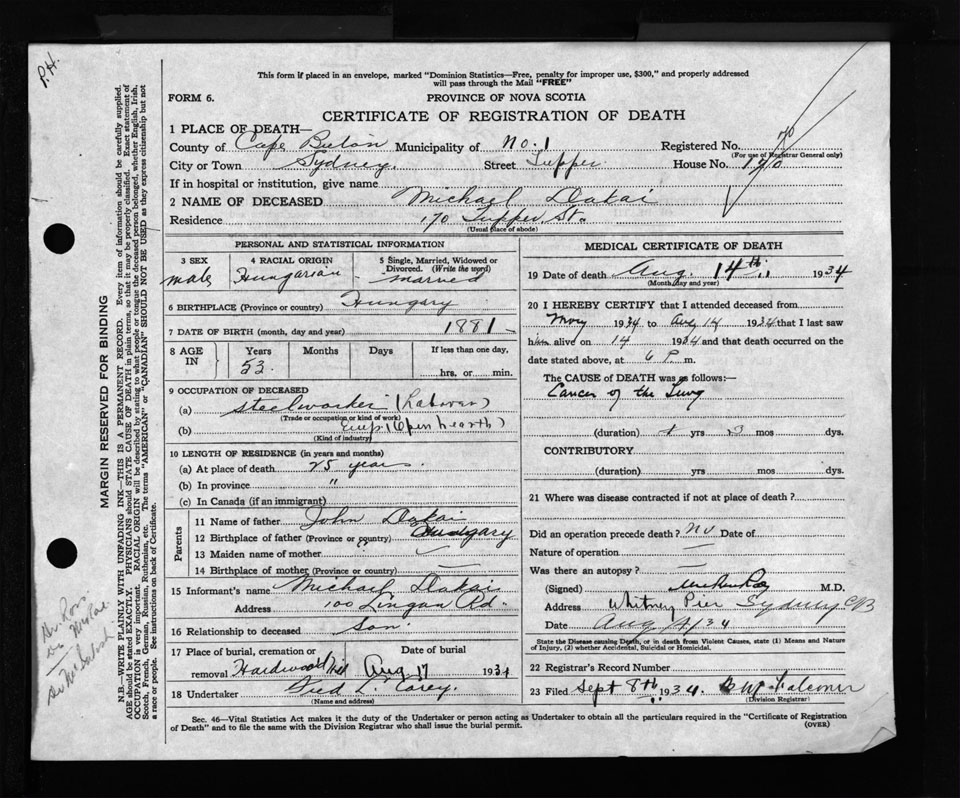 P.H.
This form if placed in an envelope, marked "Dominion Statistics—Free, penalty for improper use, $300," and properly addressed
will pass through the Mail "FREE"
FORM 6.
PROVINCE OF NOVA SCOTIA
CERTIFICATE OF REGISTRATION OF DEATH
1 PLACE OF DEATH—
County of Cape Breton Municipality of No. 1 Registered No.
(For use of Registrar General only)
City or Town Sydney. Street Tupper House No. 170
If in hospital or institution, give name
2 NAME OF DECEASED Michael Dakai
Residence 170 Tupper St.
(Usual place of abode)
PERSONAL AND STATISTICAL INFORMATION
3 SEX
male
4 RACIAL ORIGIN
Hungarian
5 Single, Married, Widowed or
Divorced. (Write the word)
Married
6 BIRTHPLACE (Province or country) Hungary
7 DATE OF BIRTH (month, day and year) 1881 -
8 AGE IN
Years Months Days If less than one day,
53. hrs. or min.
9 OCCUPATION OF DECEASED
(a) Steelworker (Laborer)
(Trade or occupation or kind of work)
(b) (Open hearth)
(Kind of industry)
10 LENGTH OF RESIDENCE (in years and months)
(a) At place of death 25 years.
(b) In province "
(c) In Canada (if an immigrant)
Parents
11 Name of father John Dakai
12 Birthplace of father (Province or country) Hungary
13 Maiden name of mother —
14 Birthplace of mother (Province or country) —
15 Informant's name Michael Dakai
Address 100 Lingan Rd.
16 Relationship to deceased Son.
17 Place of burial, cremation or removal Hardwood Hill Date of burial Aug. 17 1934
18 Undertaker Fred L. Carey.
(Name and address)
MEDICAL CERTIFICATE OF DEATH
19 Date of death Aug. 14th 1934
(Month, day and year)
20 I HEREBY CERTIFY that I attended deceased from
May 1934 to Aug 14 1934 that I last saw
him alive on 14 1934 and that death occurred on the
date stated above, at 6 P. m.
The CAUSE OF DEATH was as follows:—
Cancer of the Lung
(duration) yrs mos dys.
CONTRIBUTORY
(duration) yrs mos. dys.
21 Where was disease contracted if not at place of death?
Did an operation precede death? no Date of
Nature of operation —
Was there an autopsy? —
(Signed) M.D.
Address Whitney Pier Sydney CB
Date Aug 34
State the Disease causing Death, or in death from Violent Causes, state (1) Means and Nature
of Injury, (2) whether Accidental, Suicidal or Homicidal.
22 Registrar's Record Number
23 Filed Sept 8th 1934. Falconer
(Division Registrar)
Sec. 46—Vital Statistics Act makes it the duty of the Undertaker or person acting as Undertaker to obtain all the particulars required in the "Certificate of Registration
of Death" and to file the same with the Division Registrar who shall issue the burial permit.
(OVER)
MARGIN RESERVED FOR BINDING
N.B.—WRITE PLAINLY WITH UNFADING INK—THIS IS A PERMANENT RECORD. Every item of information should be carefully supplied.
AGE should be stated EXACTLY. PHYSICIANS should STATE CAUSE OF DEATH in plain terms, so that it may be properly classified. Exact statement of
OCCUPATION is very important. RACIAL ORIGIN will be described by stating to what people or tongue the deceased person belonged, whether English, Irish,
Scotch, French, German, Russian, Ruthenian, etc. The terms "AMERICAN" or "CANADIAN" SHOULD NOT BE USED as they express citizenship but not
a race or people. See instructions on back of Certificate.